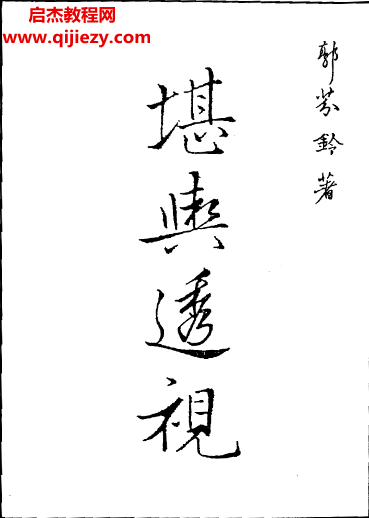 启杰教程网
www.qijiezy.com
郭芬鈴 著
堪輿透視